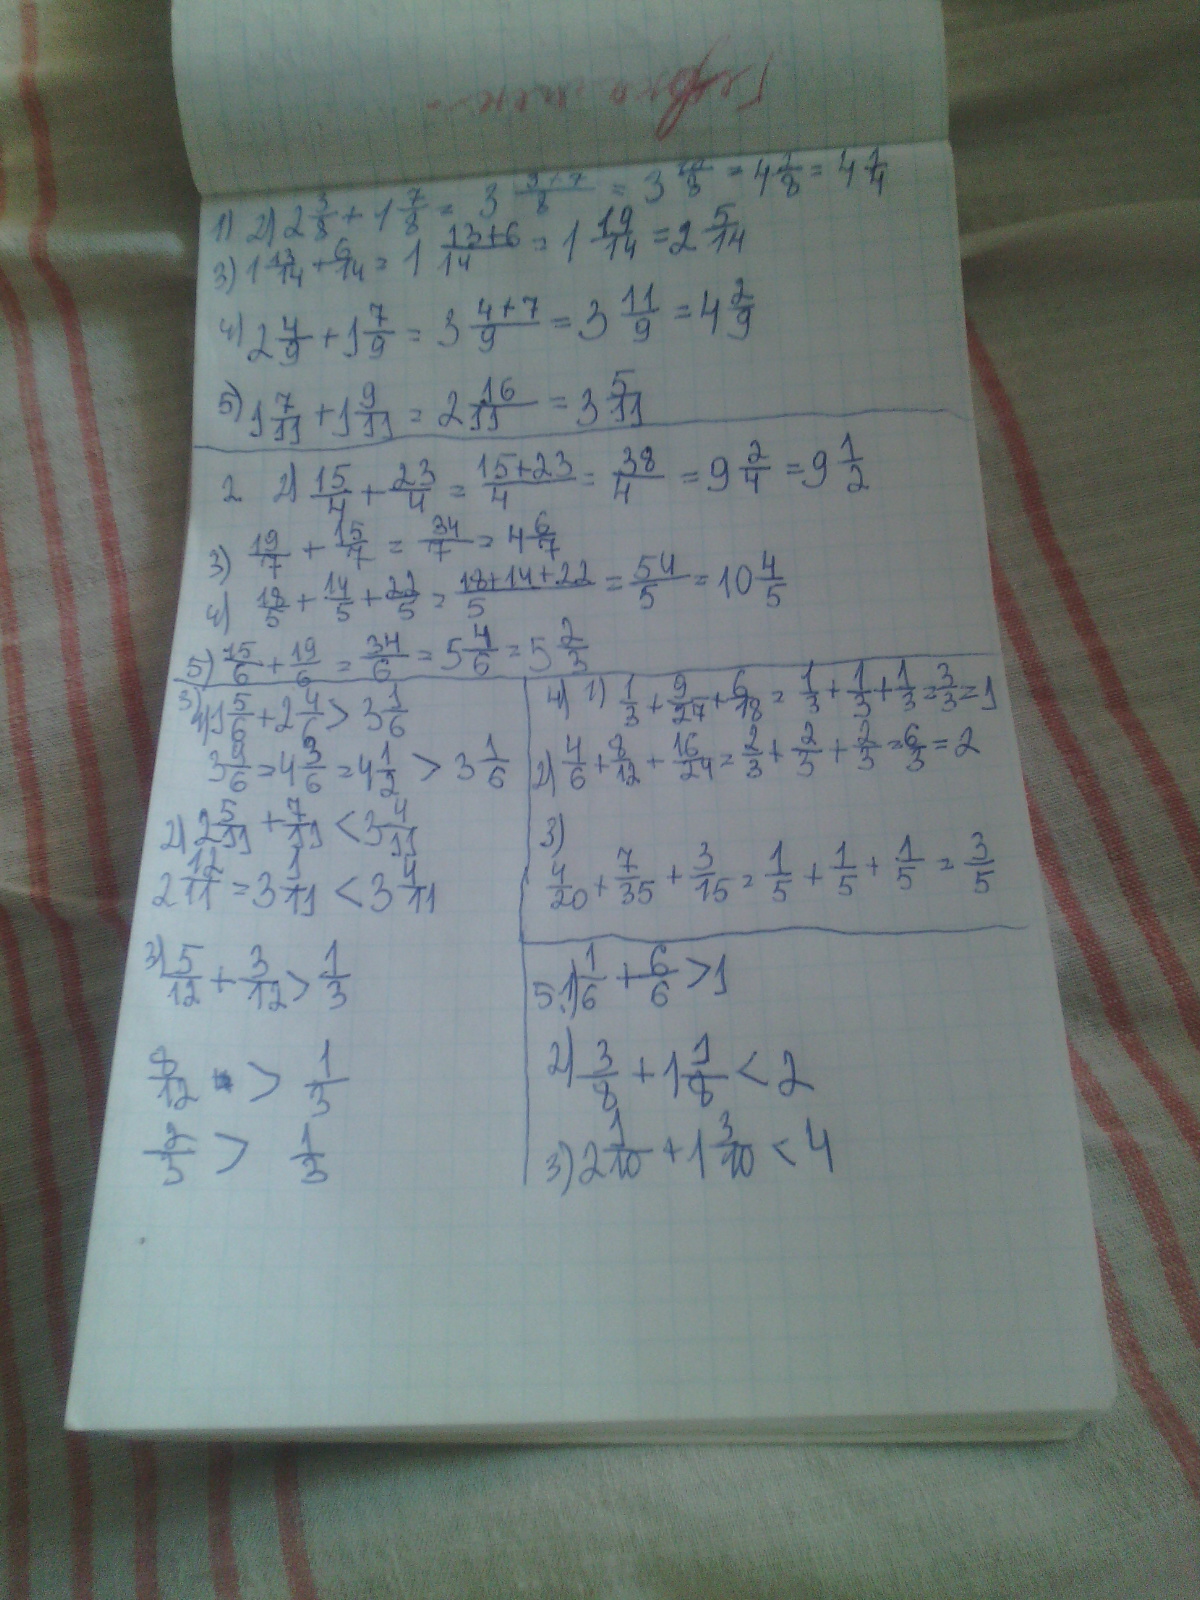 1) 2) 2 3/8 + 1 7/8 = 3 (3+7)/8 = 3 10/8 = 4 2/8 = 4 1/4
3) 1 13/14 + 6/14 = 1 (13+6)/14 = 1 19/14 = 2 5/14
4) 2 4/9 + 1 7/9 = 3 (4+7)/9 = 3 11/9 = 4 2/9
5) 1 7/11 + 1 9/11 = 2 16/11 = 3 5/11
2 2) 15/4 + 23/4 = (15+23)/4 = 38/4 = 9 2/4 = 9 1/2
3) 19/7 + 15/7 = 34/7 = 4 6/7
4) 18/5 + 14/5 + 22/5 = (18+14+22)/5 = 54/5 = 10 4/5
5) 15/6 + 19/6 = 34/6 = 5 4/6 = 5 2/3
3) 1) 1 5/6 + 2 4/6 > 3 1/6
3 9/6 = 4 3/6 = 4 1/2 > 3 1/6
2) 2 5/11 + 7/11 < 3 4/11
2 12/11 = 3 1/11 < 3 4/11
3) 5/12 + 3/12 > 1/3
8/12 > 1/3
2/3 > 1/3
4) 1) 1/3 + 9/27 + 6/18 = 1/3 + 1/3 + 1/3 = 3/3 = 1
2) 4/6 + 8/12 + 16/24 = 2/3 + 2/3 + 2/3 = 6/3 = 2
3)
4/20 + 7/35 + 3/15 = 1/5 + 1/5 + 1/5 = 3/5
5. 1) 1/6 + 6/6 > 1
2) 3/8 + 1 1/8 < 2
3) 2 1/10 + 1 3/10 < 4